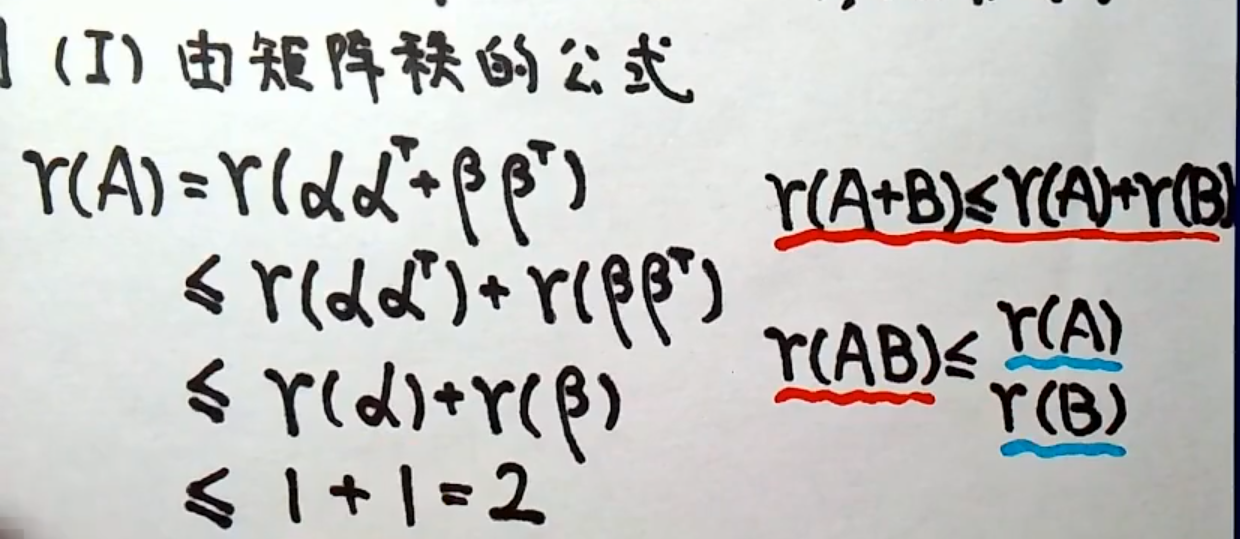 (I) 由矩阵秩的公式
r(A)=r(αα^T+ββ^T)
≤ r(αα^T)+r(ββ^T)
≤ r(α)+r(β)
≤ 1+1=2
r(A+B)≤r(A)+r(B)
r(AB)≤ r(A)
r(B)